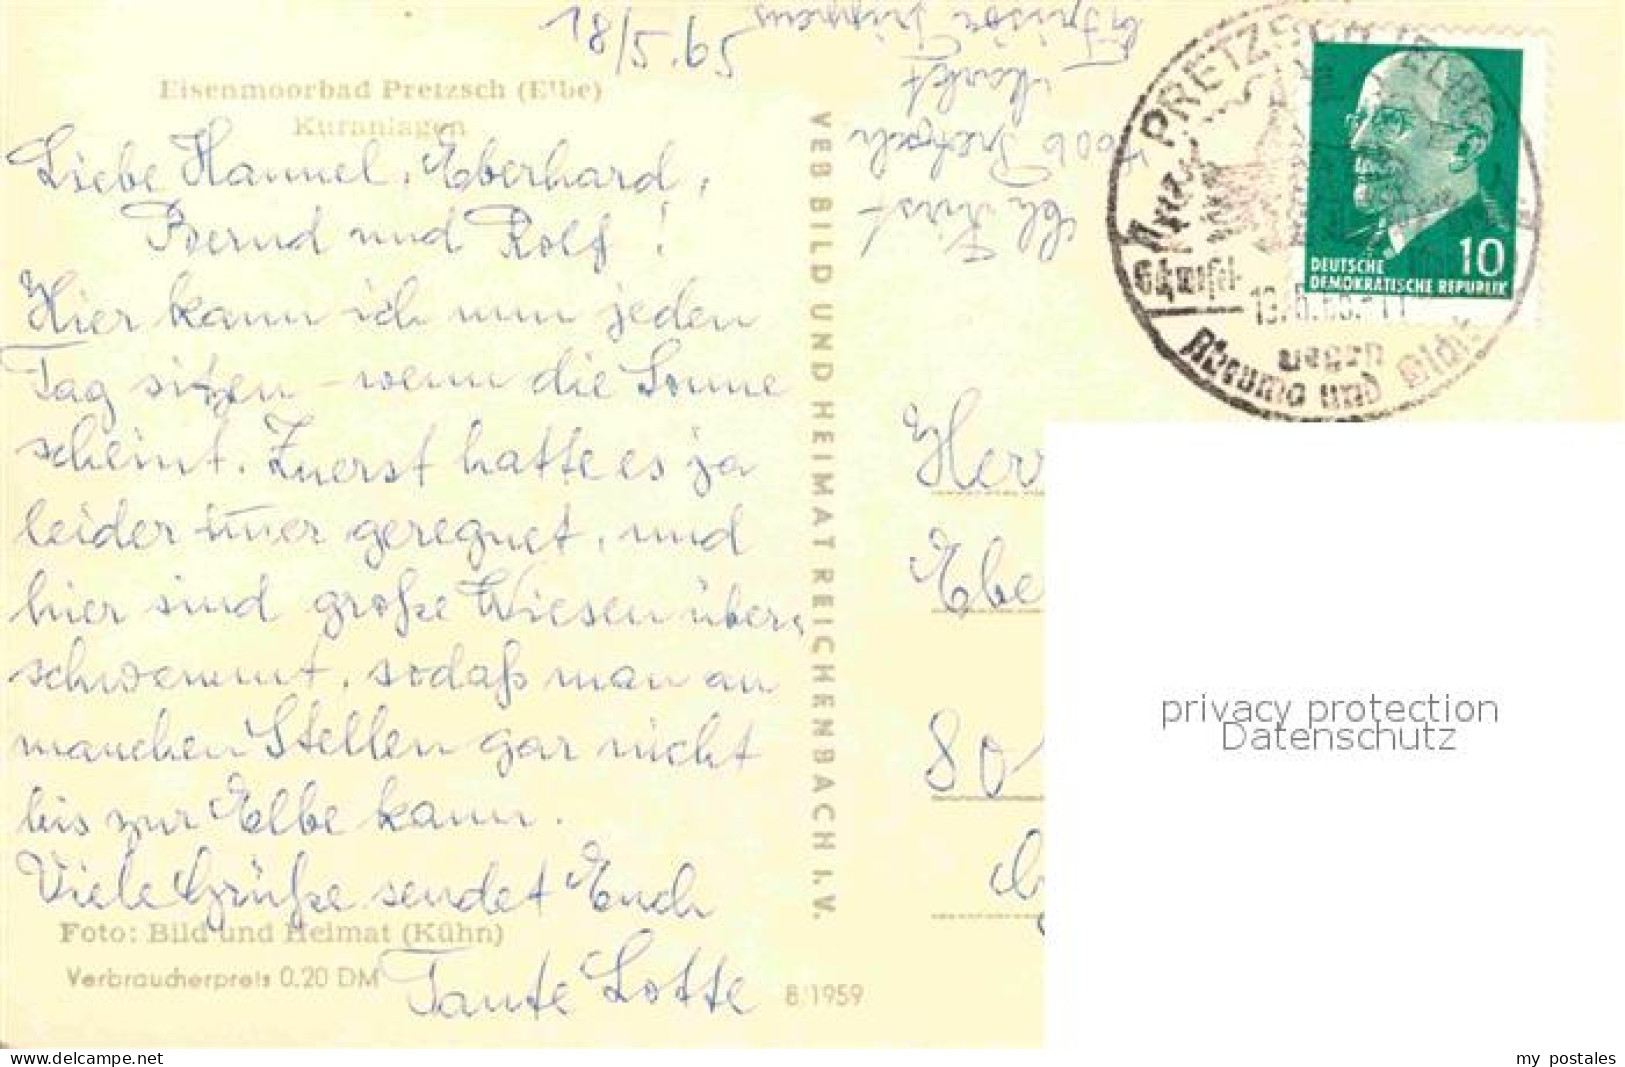 18/5.65
Eisenmoorbad Pretzsch (Elbe)
Kuranlagen
Liebe Hannel, Eberhard,
Bernd und Rolf!
Hier kann ich nun jeden
Tag sitzen - wenn die Sonne
scheint. Zuerst hatte es ja
leider im̄er geregnet, und
hier sind große Wiesen über-
schwemmt, sodaß man an
manchen Stellen gar nicht
bis zur Elbe kann.
Viele Grüße sendet Euch
Tante Lotte
Foto: Bild und Heimat (Kühn)
Verbraucherpreis 0.20 DM
8/1959
VEB BILD UND HEIMAT REICHENBACH I. V.
Markt
PRETZSCH (ELBE)
gegen
und
10
DEUTSCHE
DEMOKRATISCHE REPUBLIK
Herr
Ebe
801
privacy protection
Datenschutz
www.delcampe.net
my postales